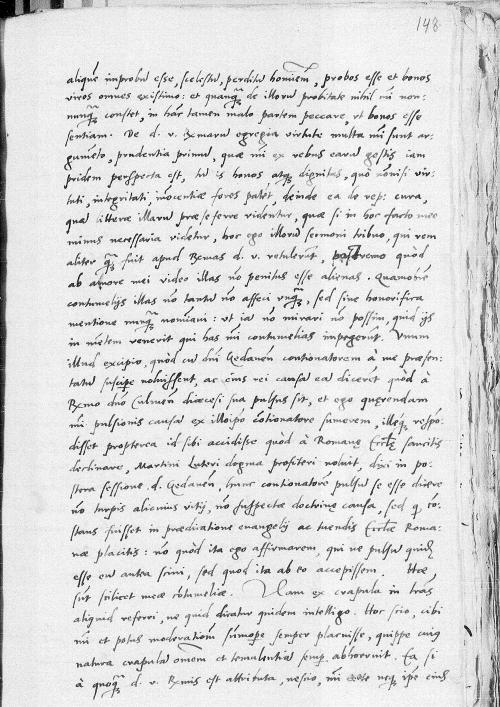 148
aliquē improbū esse, scelestū, perditū hominem, probos esse et bonos
viros omnes existimo: et quanqꝫ de illorū probitate nihil mi non-
nunqꝫ constet, in hāc tamen malo partem peccare, vt bonos esse
sentiam. De d. v. Rxmarū egregia virtute multa mi sunt ar-
gumēto, prudentia primū, quae mi ex rebus earū gestis iam
pridem perspecta est, tū is honos atqꝫ dignitas, quo nōnisi vir-
tuti, integritati, inocentiae fores patēt, deinde ea de rep: cura,
quā litterae illarū prae se ferre videntur, quae si in hoc facto meo
minus necessaria videtur, hoc ego illorū sermoni tribuo, qui rem
aliter qꝫ fuit apud Rxmas d. v. retulerūt, postremo quod
ab amore mei video illas nō penitus esse alienas. Quamobrē
contumelijs illas nō tantū nō affeci vnqꝫ, sed sine honorifica
mentione nunqꝫ nominaui: vt iā nō mirari nō possim, quid ijs
in mētem venerit qui has mi contumelias impegerūt. Vnum
illud excipio, quod cū dni Gedanēn contionatorem à me praesen-
tatū suscipe noluissent, ac eius rei causā eā dicerēt quòd à
Rxmo dno Culmēn dioecesi sua pulsus sit, et ego quęrendam
mi pulsionis causā ex illoipso cōtionatore sumerem, illeqꝫ respō-
disset propterea id sibi accidisse quòd à Romanę Ecclę sanctis
declinare, Martini Luteri dogma profiteri noluit, dixi in po-
stera sessione d. Gedanēn, hunc contionatorē pulsū se esse dicere
nō turpis alicuius vitij, nō suspectae doctrinę causa, sed q cō-
stans fuisset in praedicatione euangelij ac tuendis Ecclae Roma-
nae placitis: nō quòd ita ego affirmarem, qui ne pulsū quidē
esse eū antea sciui, sed quod ita ab eo accepissem. Hae
sūt scilicet meae cōtumeliae. Nam ex crapula in trās
aliquid referri, ne quid dicatur quidem intelligo. Hoc scio, cibi
mi et potus moderationē sūmope semper placuisse, quippe cuiꝗ
natura crapulā omnem et temulentiā semp abhorruit. Ea si
à quoqꝫ d. v. Rxmis est attributa, nescio, mi neqꝫ ipe eius